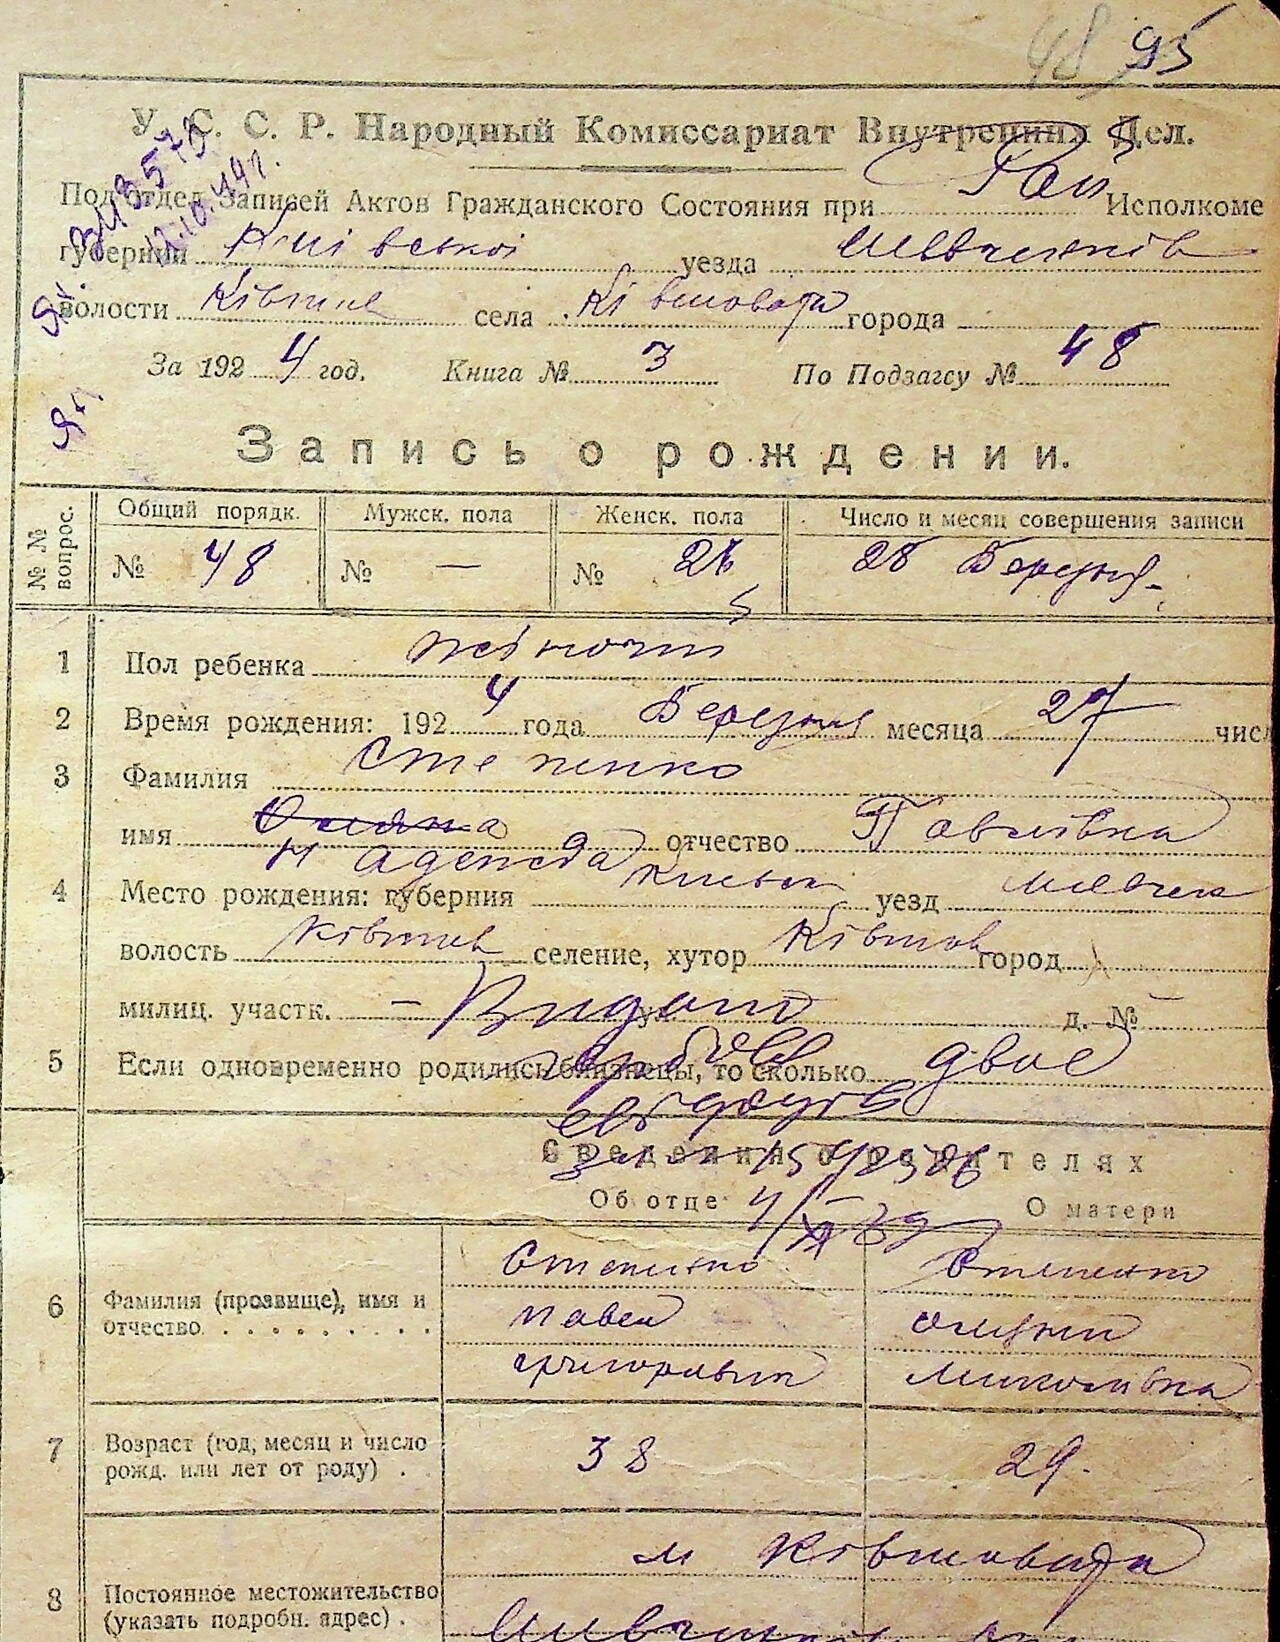 48 95
У. С. С. Р. Народный Комиссариат Внутренних Дел.
Под‘отдел Записей Актов Гражданского Состояния при Рай Исполкоме
губернии Київської уезда Шевченків
волости Ківшов села Ківшовата города
За 1924 год. Книга № 3 По Подзагсу № 48
Запись о рождении.
№ № вопрос.
Общий порядк. Мужск. пола Женск. пола Число и месяц совершения записи
№ 48 № — № 26 28 Березня
1 Пол ребенка жіночий
2 Время рождения: 1924 года Березня месяца 27 числ
3 Фамилия Степенко
имя отчество Павлівна
Надежда
4 Место рождения: губерния Киевск уезд Шевченк
волость Ківшов селение, хутор Ківшов город
милиц. участк. — у д. № —
Видано
5 Если одновременно родились близнецы, то сколько двое
Сведения о родителях
Об отце О матери
6 Фамилия (прозвище), имя и отчество
Степенко Степенко
Павел
Григорович Миколівна
7 Возраст (год, месяц и число рожд. или лет от роду) . 38 29.
8 Постоянное местожительство (указать подробн. адрес) .
м Ківшовата